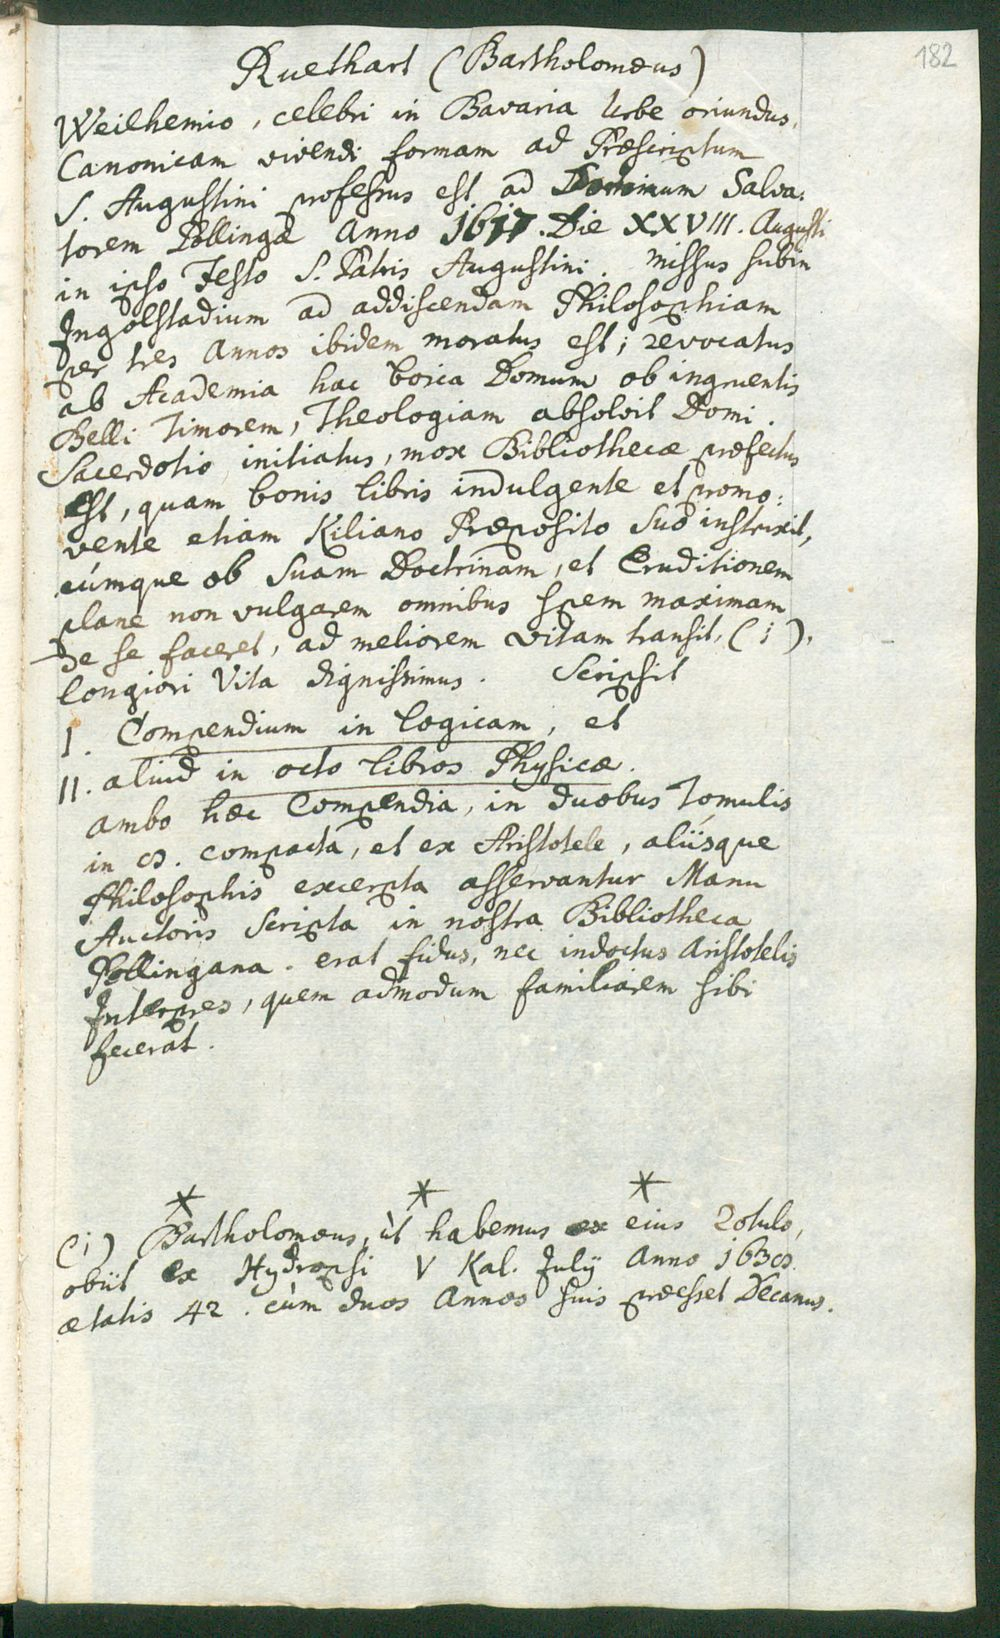 182
Ruethart (Bartholomæus)
Weilhemio, celebri in Bavaria Urbe oriundus,
Canonicam vivendi formam ad Præscriptum
S. Augustini professus est ad Dominum Salva:
torem Pollingæ Anno 1617. Die XXVIII. Augusti
in ipso Festo S. Patris Augustini. Missus subin
Ingolstadium ad addiscendam Philosophiam
per tres Annos ibidem moratus est; revocatus
ab Academia hac boica Domum ob ingruentis
Belli Timorem, Theologiam absolvit Domi.
Sacerdotio initiatus, mox Bibliothecæ præfectus
est, quam bonis libris indulgente et promo:
vente etiam Kiliano Præposito suo instruxit,
cúmque ob suam Doctrinam, et Eruditionem
plane non vulgarem omnibus spem maximam
de se faceret, ad meliorem vitam transit, (i),
longiori Vita dignissimus. Scripsit
I. Compendium in logicam, et
II. aliud in octo libros Physicæ.
ambo hæc Compendia, in duobus Tomulis
in 8. compacta, et ex Aristotele, aliisque
Philosophis excerpta asservantur Manu
Auctoris Scripta in nostra Bibliotheca
Pollingana. erat fidus, nec indoctus Aristotelis
Interpres, quem admodum familiarem sibi
fecerat.
* * *
(i) Bartholomæus, ùt habemus ex eius Rotulo,
obiit ex Hydropsi V Kal. Julÿ Anno 1638.
ætatis 42. cùm duos Annos suis præesset Decanus.